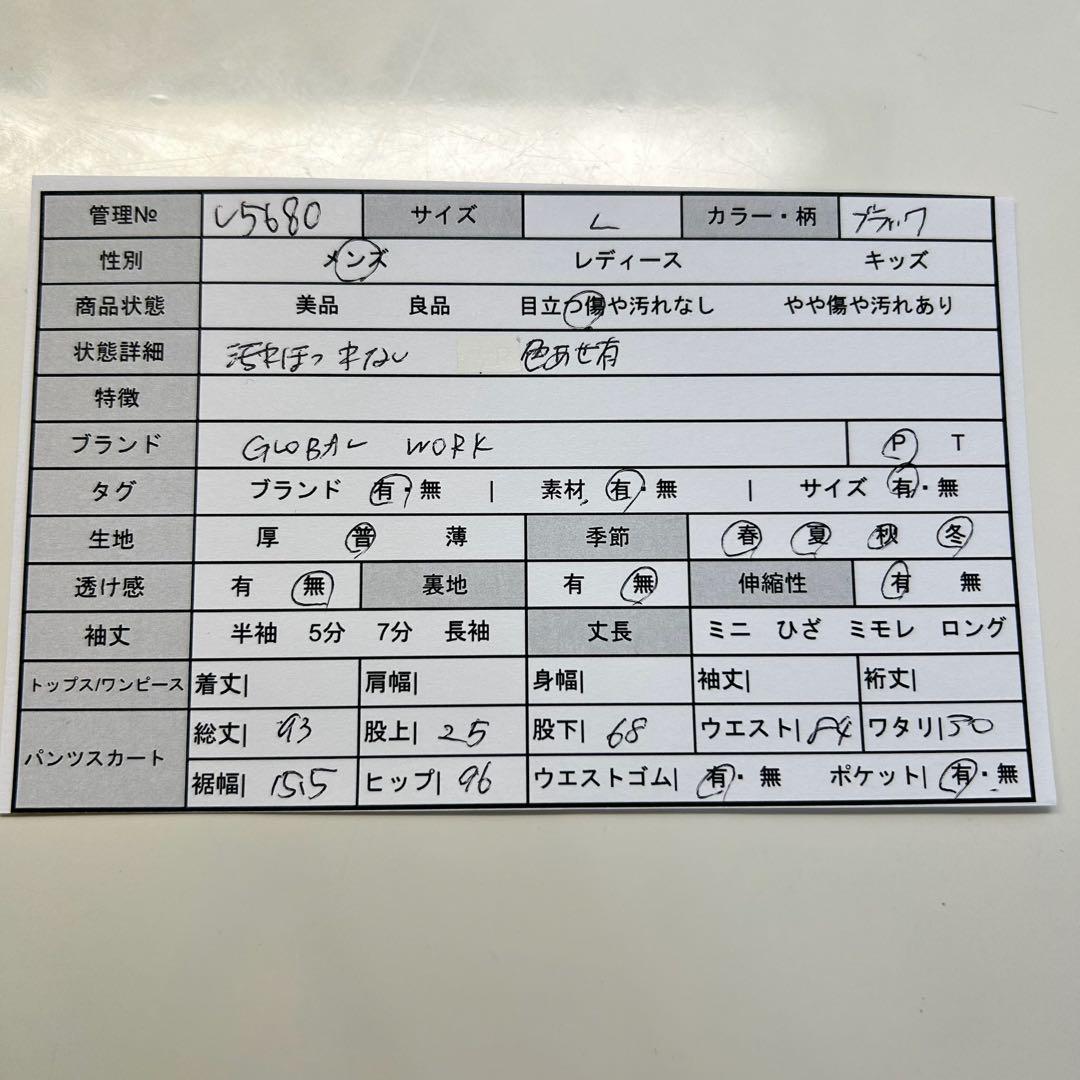 管理№ U5680 サイズ L カラー・柄 ブラック
性別 メンズ レディース キッズ
商品状態 美品 良品 目立つ傷や汚れなし やや傷や汚れあり
状態詳細 汚れほつれなし 色あせ有
特徴
ブランド GLOBAL WORK P T
タグ ブランド 有・無 | 素材 有・無 | サイズ 有・無
生地 厚 普 薄 季節 春 夏 秋 冬
透け感 有 無 裏地 有 無 伸縮性 有 無
袖丈 半袖 5分 7分 長袖 丈長 ミニ ひざ ミモレ ロング
トップス/ワンピース 着丈| 肩幅| 身幅| 袖丈| 裄丈|
パンツスカート 総丈| 93 股上| 25 股下| 68 ウエスト| 84 ワタリ| 30
裾幅| 15.5 ヒップ| 96 ウエストゴム| 有・無 ポケット| 有・無